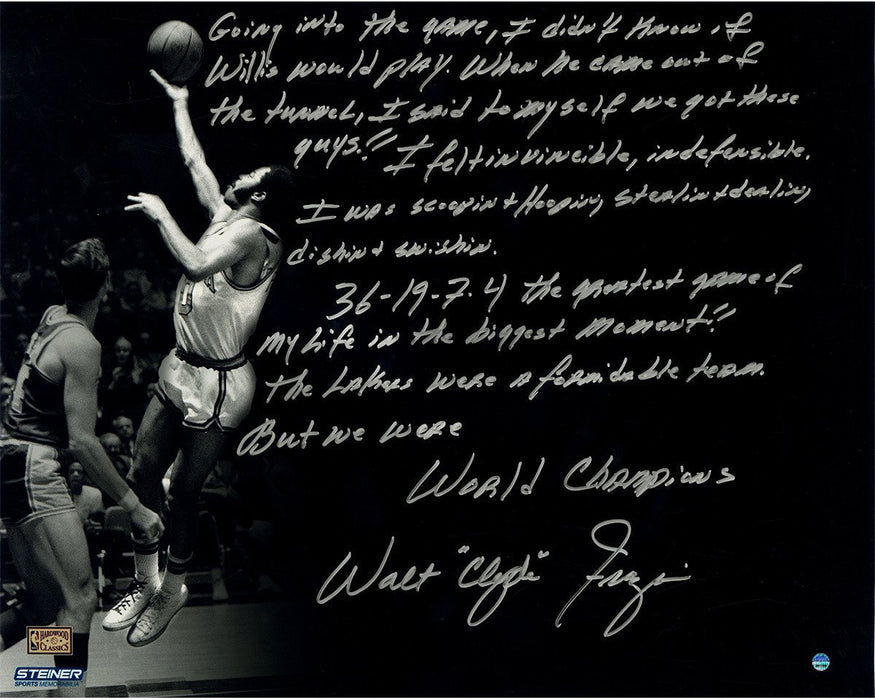 Going into the game, I didn't know if
Willis would play. When he came out of
the tunnel, I said to myself we got these
guys!! I felt invincible, indefensible.
I was scoopin + Hooping, stealin + dealin,
dishin + swishin.
36-19-7.4 the greatest game of
my Life in the biggest moment!!
The Lakers were a formidable team.
But we were
World Champions
Walt "Clyde" Frazier
0
NBA HARDWOOD CLASSICS
STEINER
SPORTS MEMORABILIA